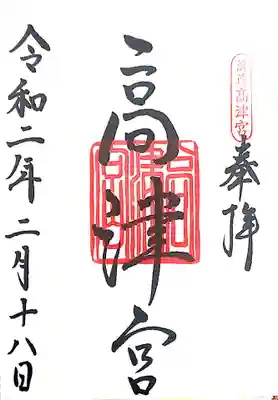 高津宮
奉拝
高津宮
令和二年二月十八日